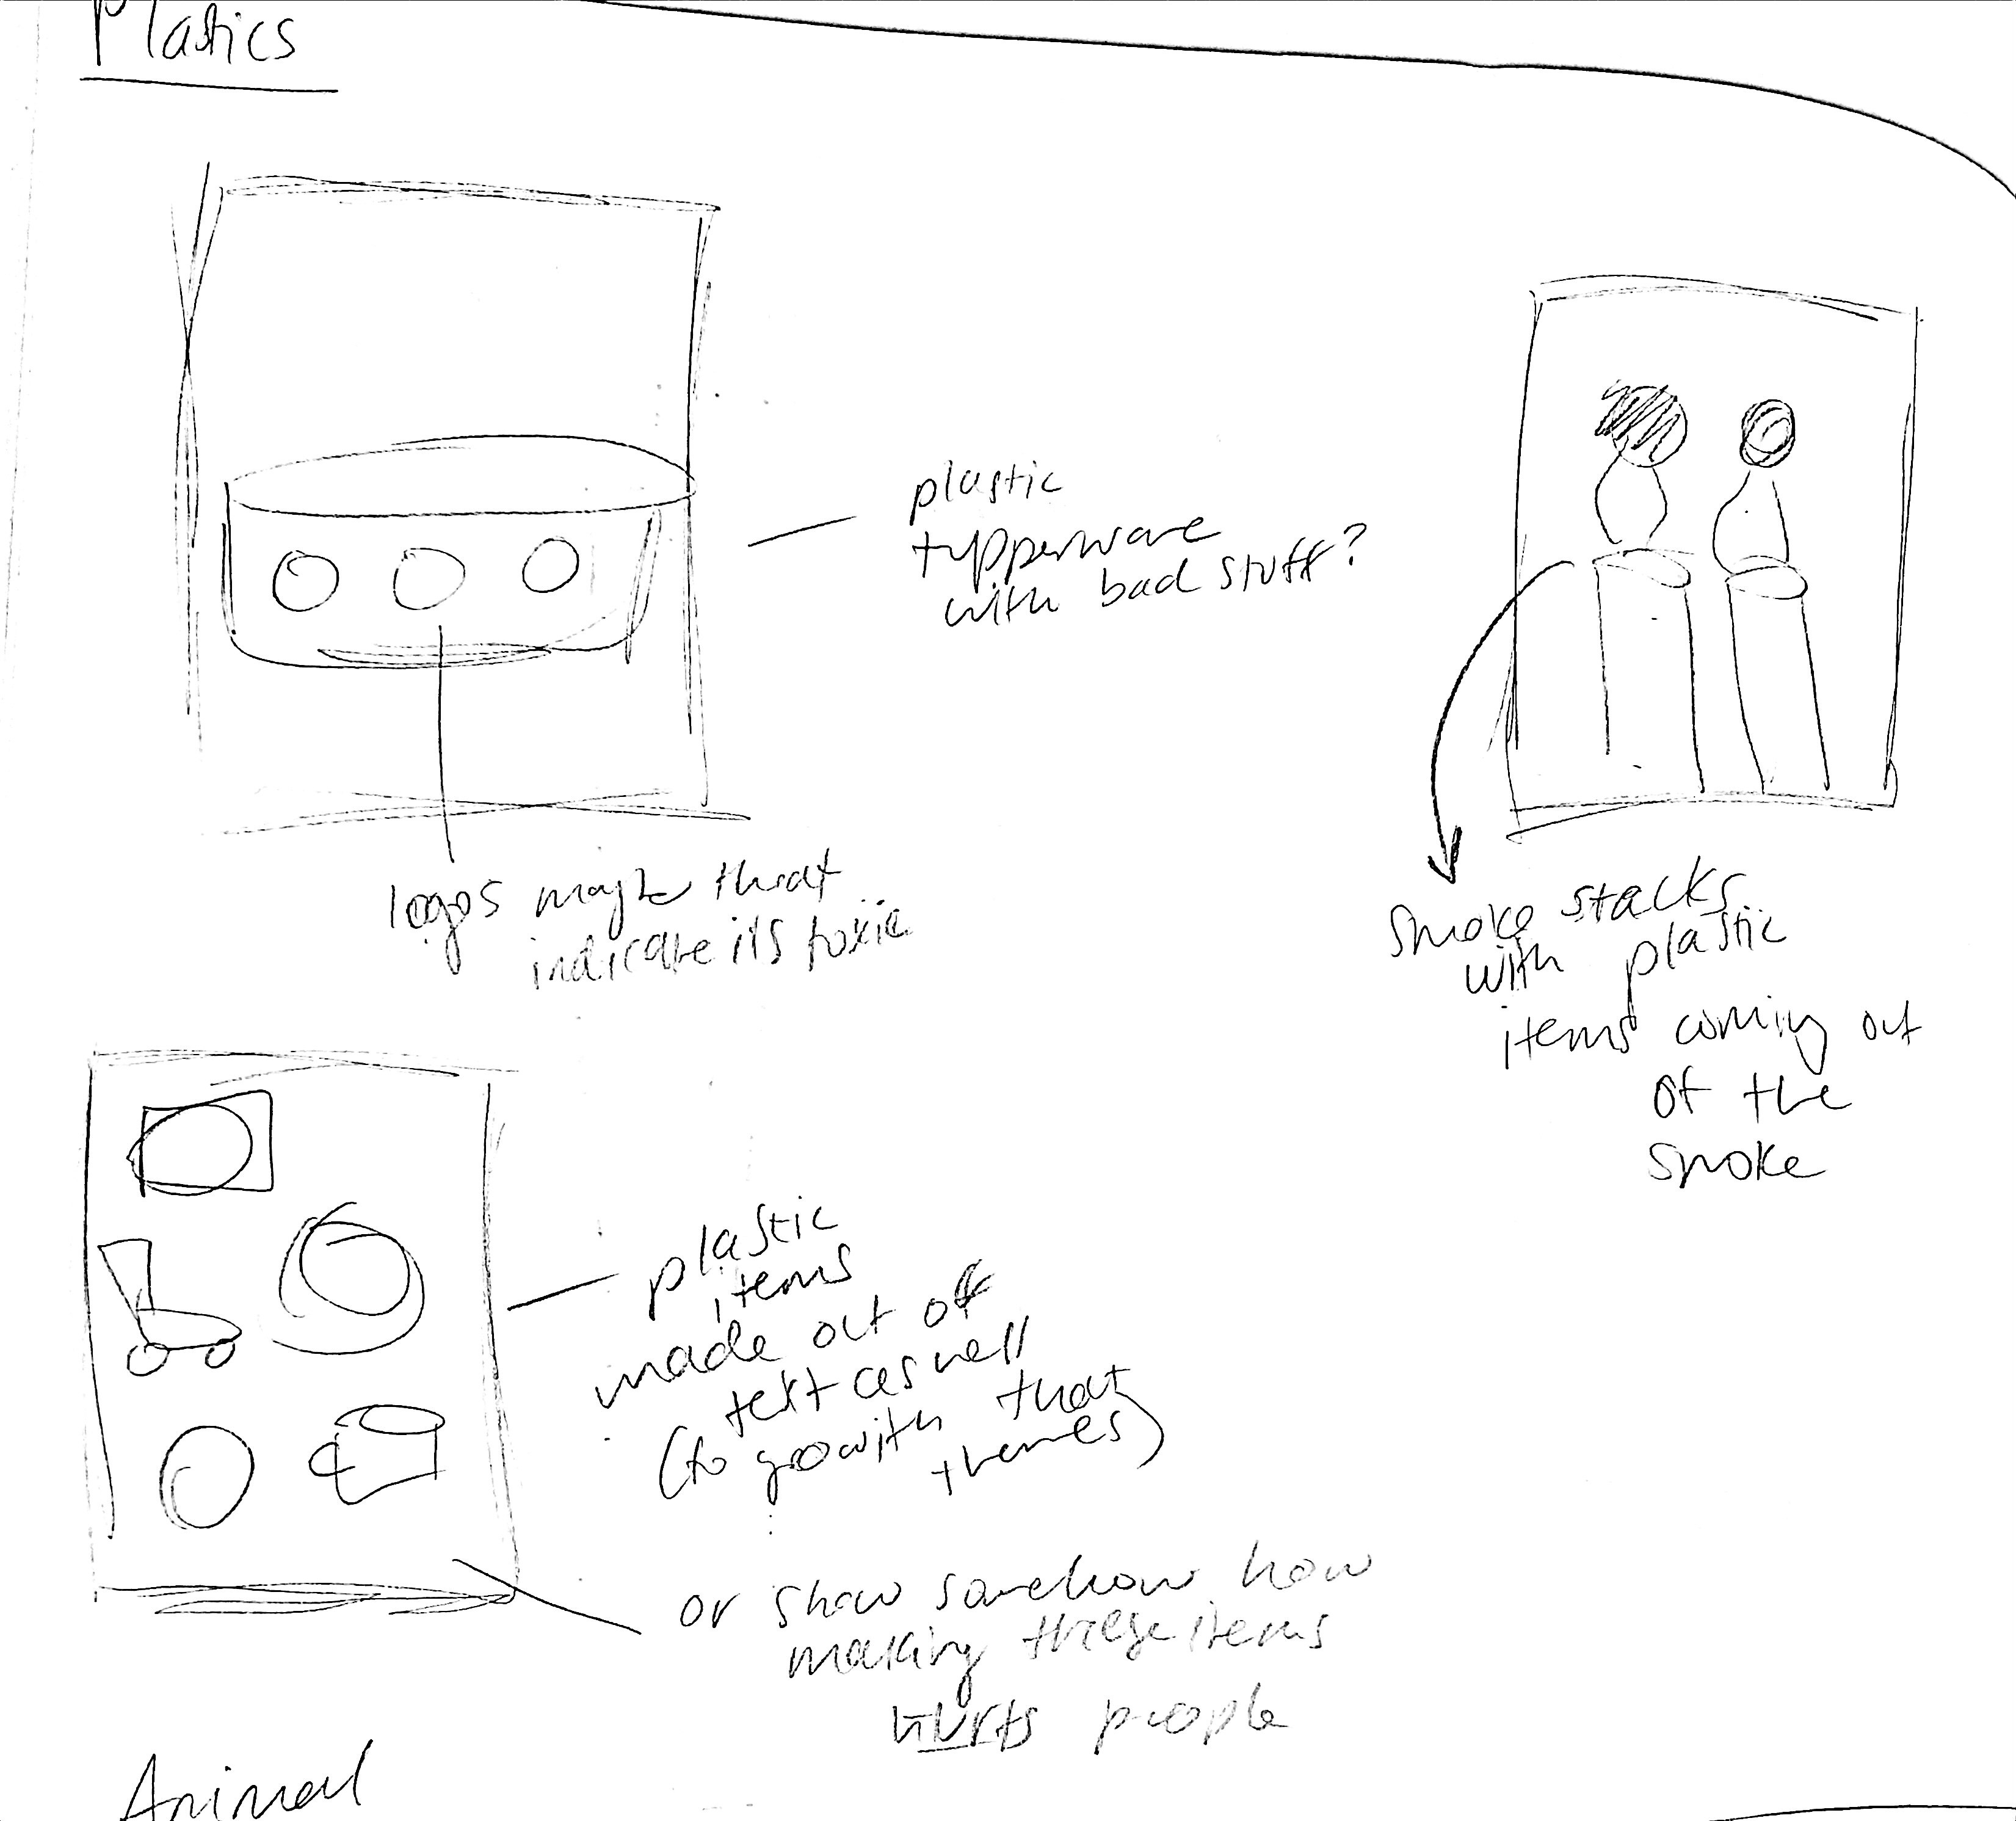 Plastics
plastic
tupperware
with bad stuff?
logos maybe that
indicate its toxic
smoke stacks
with plastic
items coming out
of the
smoke
plastic
items
made out of
text as well
(to go with that
themes)
or show somehow how
making these items
hurts people
Animal